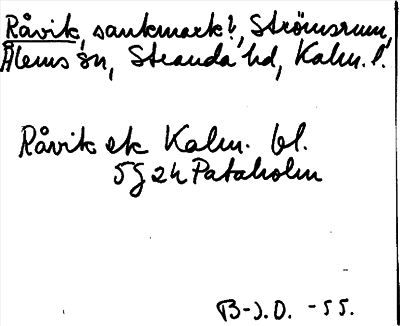 Råvik, sankmark?, Strömsrum,
Ålems sn, Stranda hd, Kalm. l.
Råvik ek Kalm. bl.
5G 2h Pataholm
B-J.O. -55.